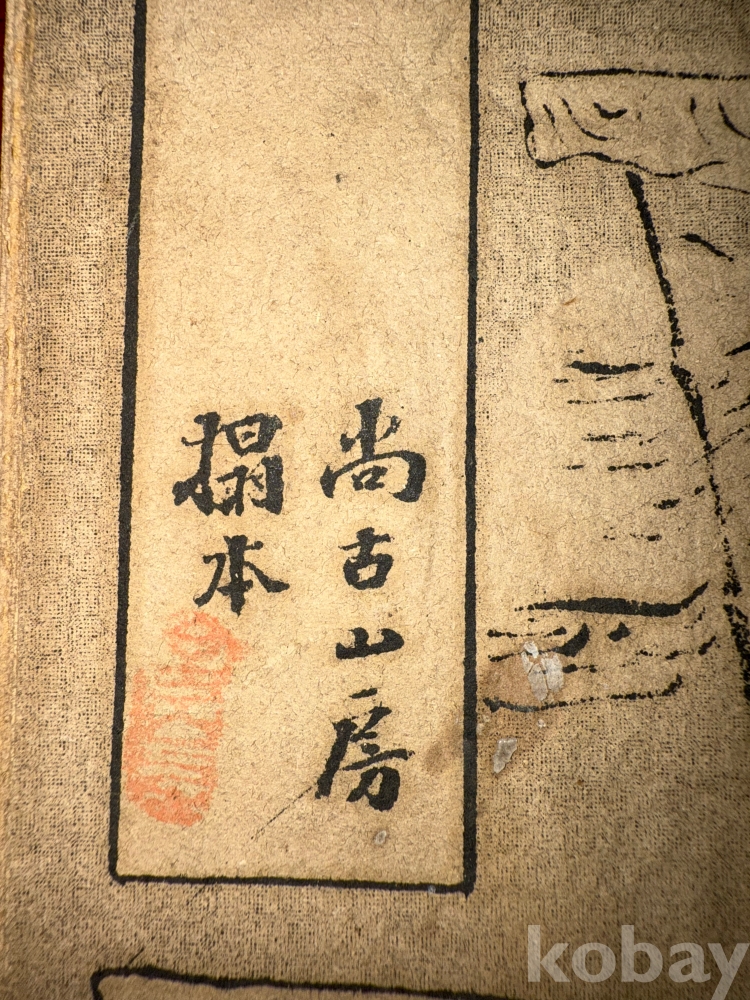 尚古山房
搨本
kobay